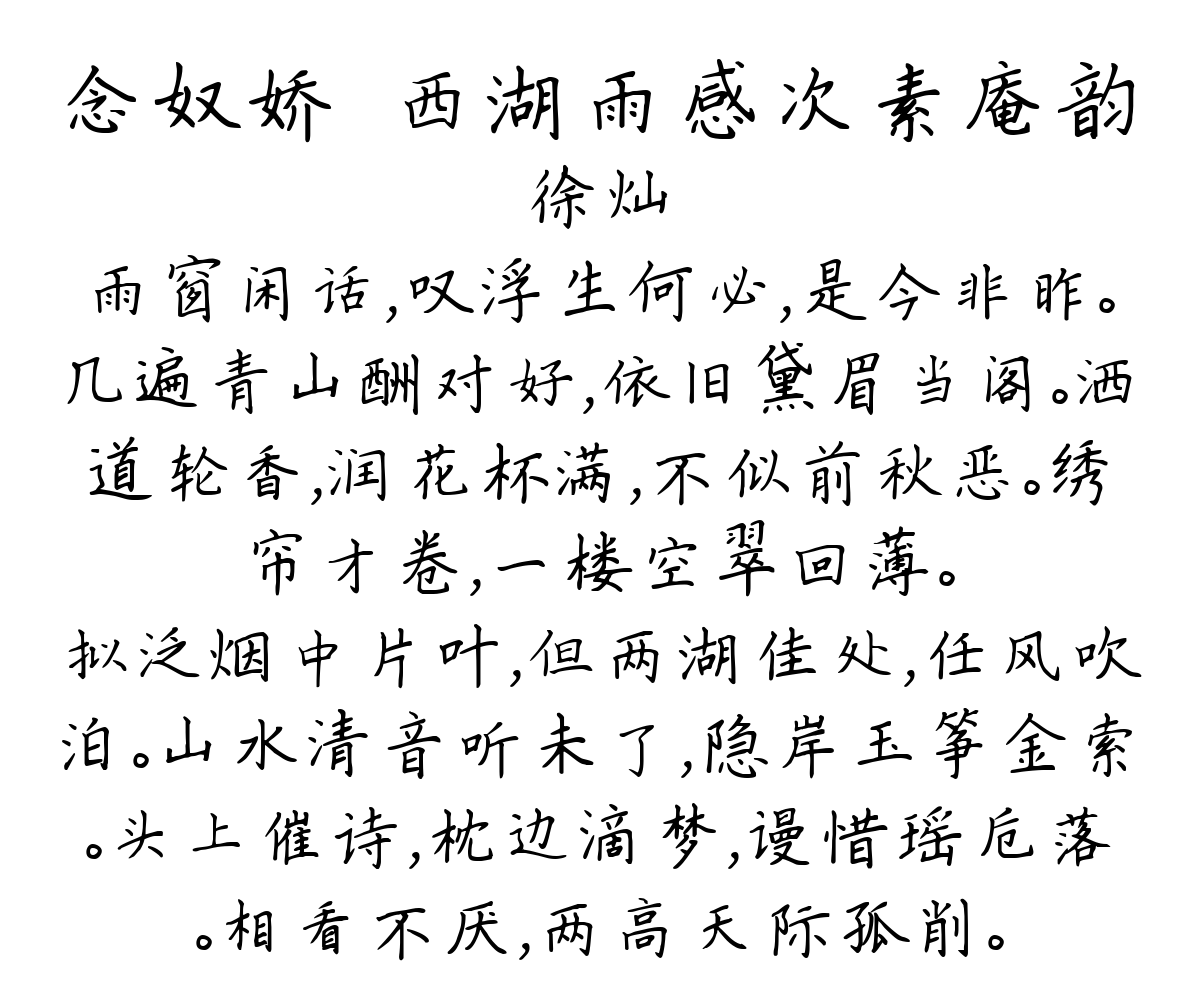 念奴娇 西湖雨感次素庵韵
徐灿
雨窗闲话,叹浮生何必,是今非昨。
几遍青山酬对好,依旧黛眉当阁。洒
道轮香,润花杯满,不似前秋恶。绣
帘才卷,一楼空翠回薄。
拟泛烟中片叶,但两湖佳处,任风吹
泊。山水清音听未了,隐岸玉筝金索
。头上催诗,枕边滴梦,谩惜瑶卮落
。相看不厌,两高天际孤削。